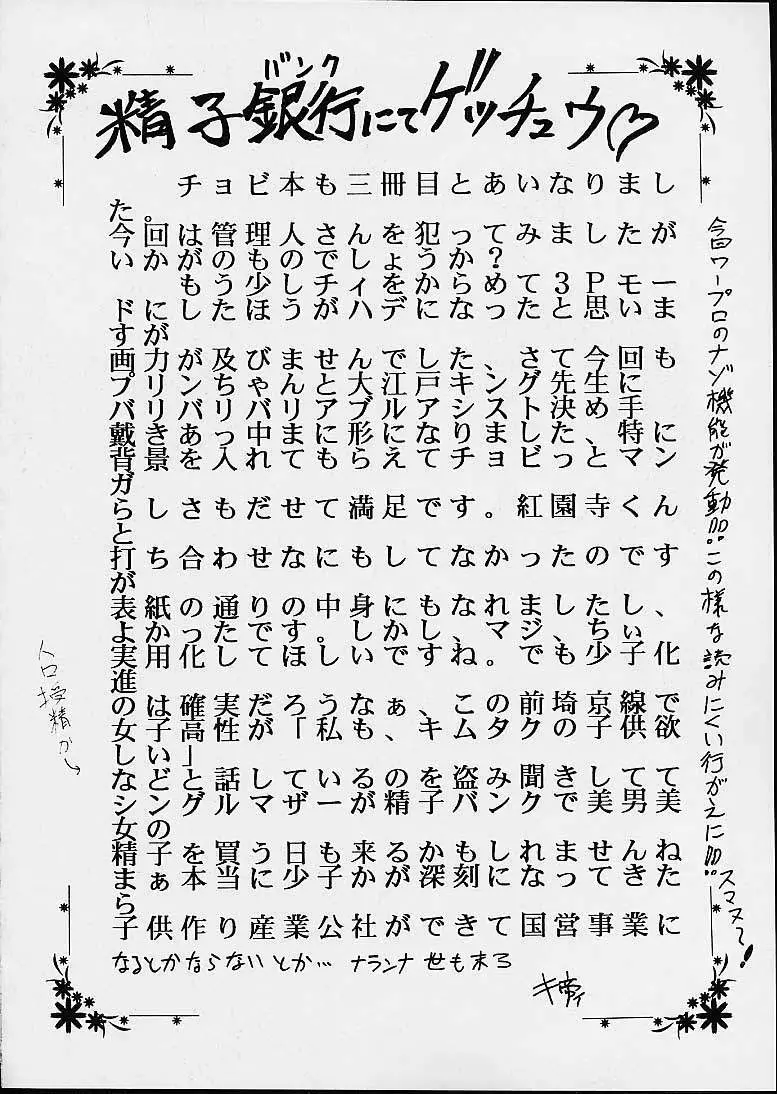 精子銀行にてゲッチュウ♡
バンク
チョビ本も三冊目とあいなりまし
た。
今回は管理人さんを犯ってみましたが
いかがのものでしょうか?
もう少しチィをからめて3Pモー
ドにしたほうがハデになったと思いま
すが
画力が及びませんでした、さて今回も
プリンちゃんと大江戸キシグ先生に
バリバリバリアブルアシスト決め手に
戴きあっ中まに形になりました、特に
背景を入れてもらえてチョビっとマン
ガ
らしさもだせて満足です。紅園寺くん
と
打ち合わせなにもしてなかったのです
が
表紙の通りの中身にもなれましたし、
よかったです。しかし、マジ、ちぃ
実用化してほしいですね。でも少子化
進
のは確実だろうなぁ、この前埼京線で
女子高性が「私もキムタクの子供欲
しい」
などと話しているのを盗み聞きして
シングルマザーが精子バンクで美男美
女の
精子を買う日も来るかもしれませんね
まぁ本当に少子かが深刻になってきた
ら子供作り産業公社ができて国営事業に
なるとかならないとか… ナランナ 世も末ろ
今回ワープロのナゾ機能が発動!!!この様な読みにくい行がえに!!!スマヌ〜!
人口授精か